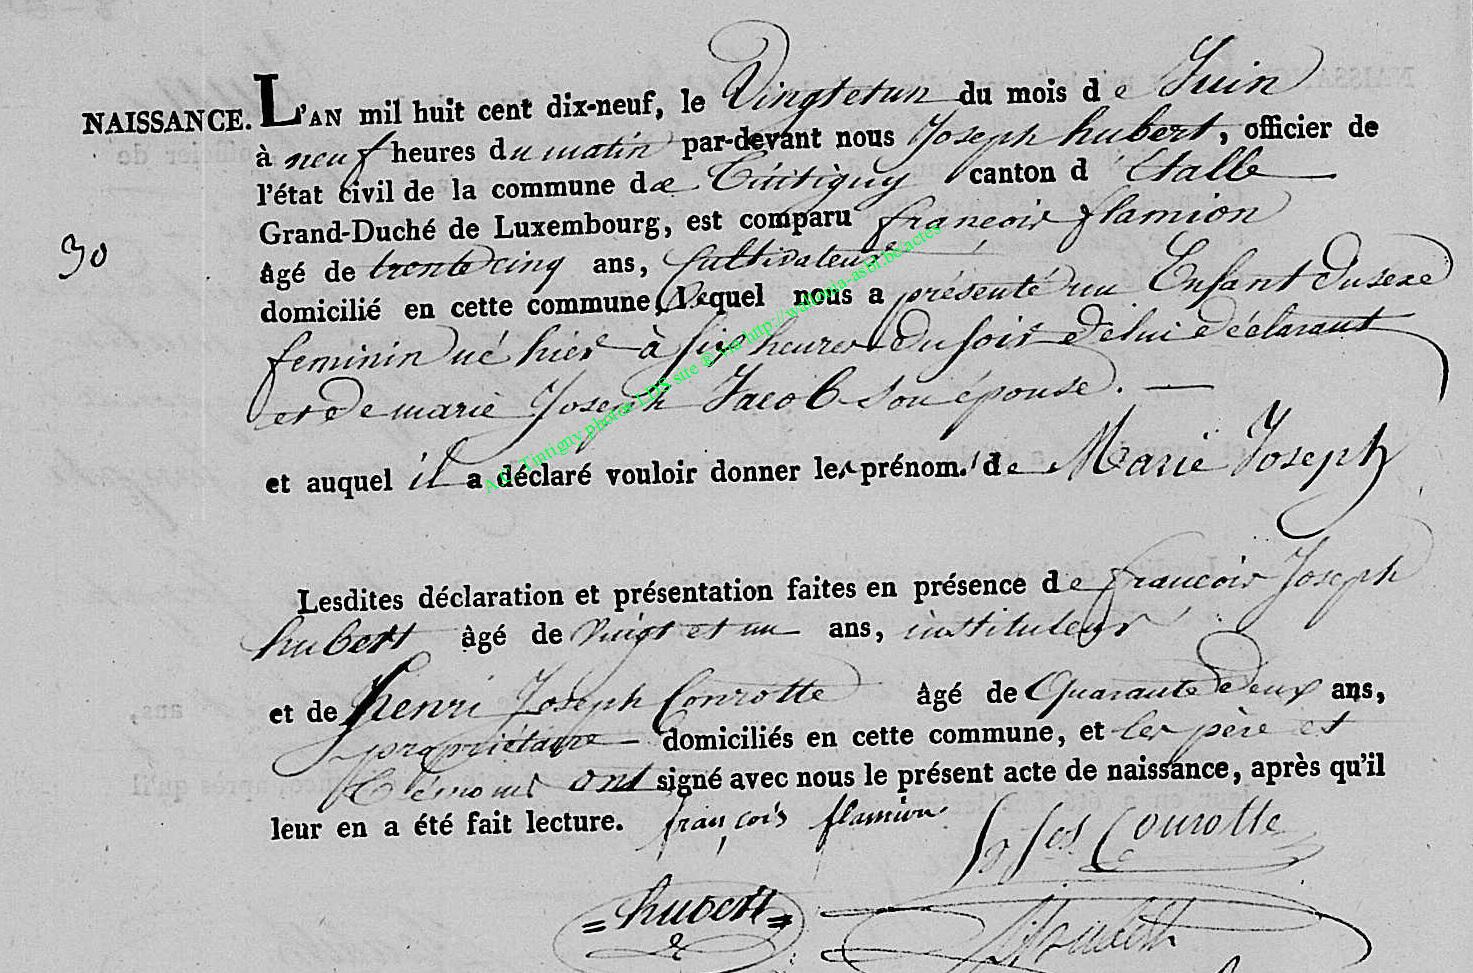 NAISSANCE. L'AN mil huit cent dix-neuf, le Vingtetun du mois de Juin
à neuf heures du matin par-devant nous Joseph hubert, officier de
l'état civil de la commune de Tintigny canton d'Etalle
Grand-Duché de Luxembourg, est comparu francois flamion
30
âgé de trente cinq ans, Cultivateur
domicilié en cette commune, Lequel nous a présenté un Enfant Du sexe
feminin né hier à six heures Du soir De lui Déclarant
et De marie Joseph Jacob Son épouse.
et auquel il a déclaré vouloir donner les prénoms de Marie Joseph
A.C. Tintigny photos LDS site © via http://wallonia-asbl.be/actes
Lesdites déclaration et présentation faites en présence de francois Joseph
hubert âgé de vingt et un ans, instituteur
et de henri Joseph Conrotte âgé de Quarante Deux ans,
propriétaire domiciliés en cette commune, et les père et
témoins ont signé avec nous le présent acte de naissance, après qu'il
leur en a été fait lecture. françois flamion
Jos Conrotte
hubert